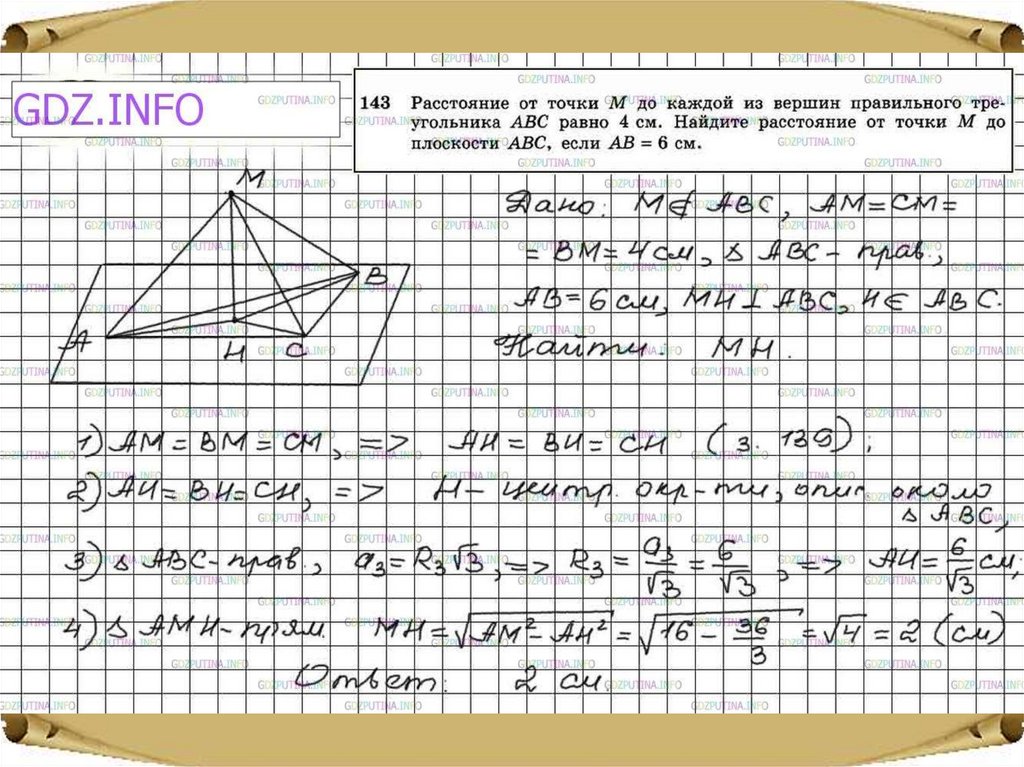 GDZ.INFO
143 Расстояние от точки M до каждой из вершин правильного тре-
угольника ABC равно 4 см. Найдите расстояние от точки M до
плоскости ABC, если AB = 6 см.
M
B
A
H
C
Дано: M ∉ ABC, AM = CM =
= BM = 4 см, Δ ABC - прав.,
AB = 6 см, MH ⊥ ABC, H ∈ ABC.
Найти: MH.
1) AM = BM = CM, => AH = BH = CH (з. 139);
2) AH = BH = CH, => H - центр. окр-ти, опис около
Δ ABC,
3) Δ ABC - прав., a₃ = R₃√3, => R₃ = a₃/√3 = 6/√3, => AH = 6/√3 см;
4) Δ AMH - прям. MH = √(AM² - AH²) = √(16 - 36/3) = √4 = 2 (см)
Ответ: 2 см.
GDZPUTINA.INFO